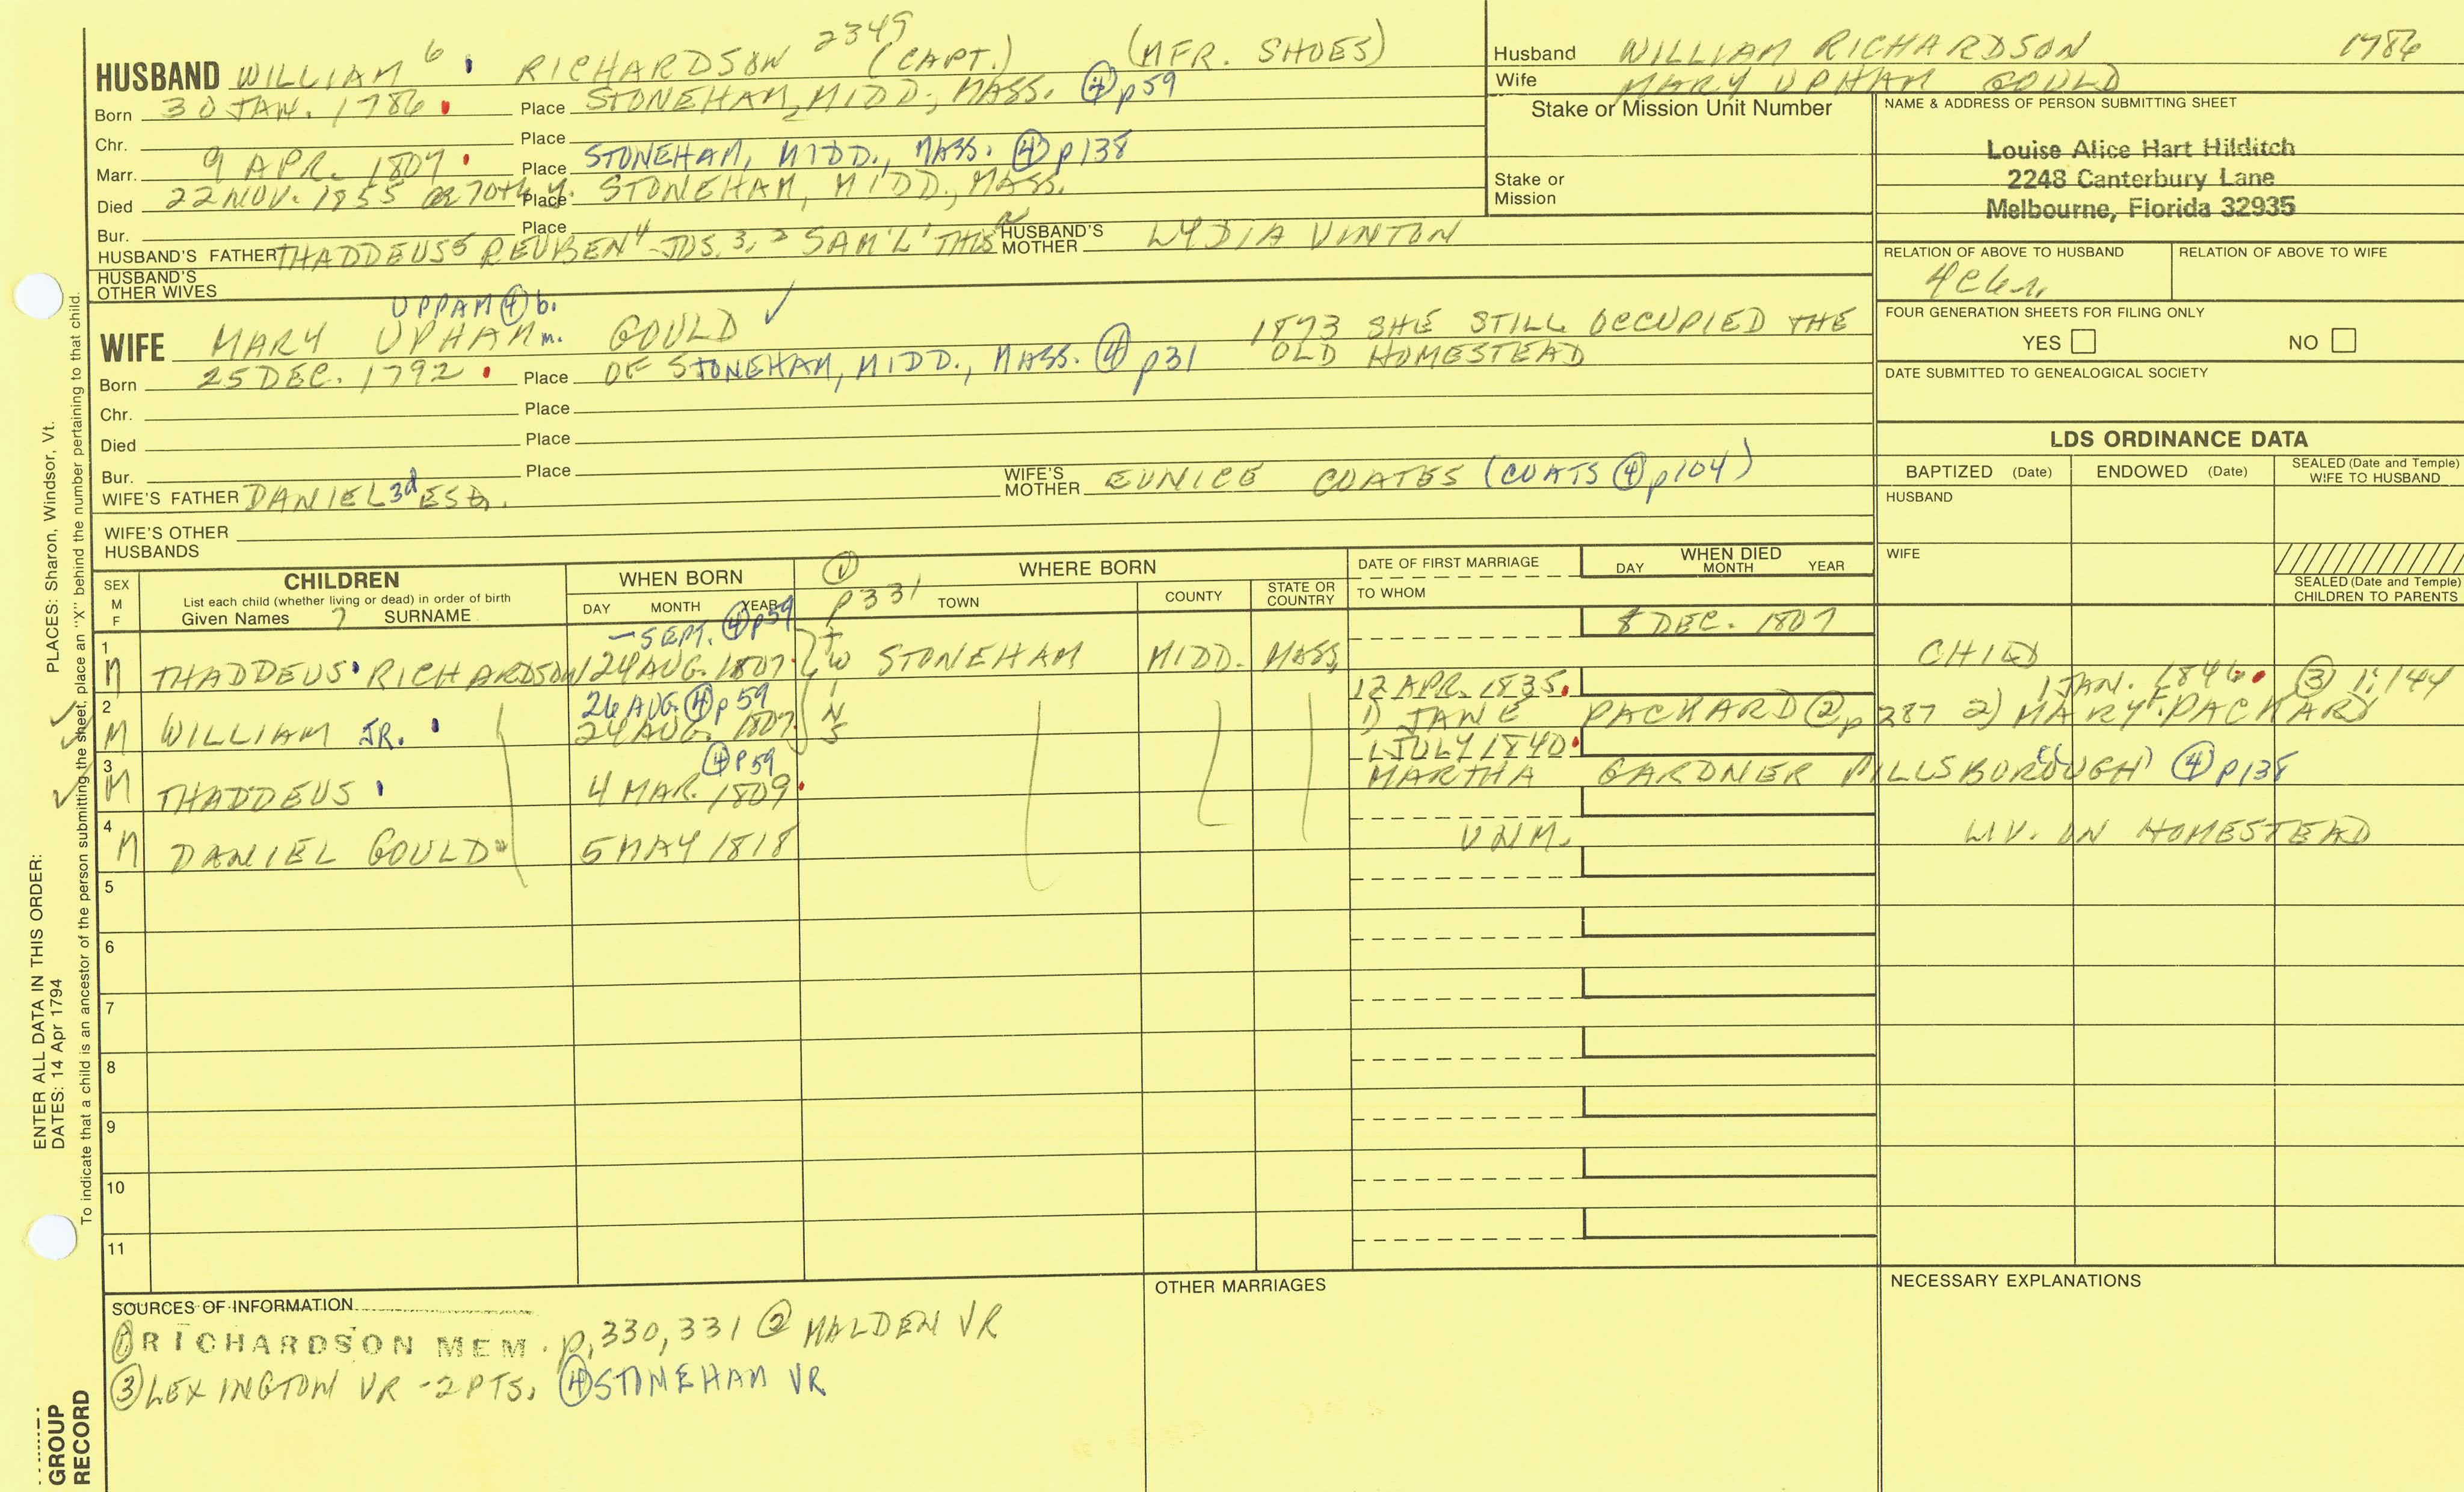 HUSBAND WILLIAM 6 RICHARDSON 2349 (CAPT.) (MFR. SHOES)
Born 30 JAN. 1786 Place STONEHAM, MIDD., MASS. ④ p59
Chr. Place
Marr. 9 APR. 1807 Place STONEHAM, MIDD., MASS. ④ p138
Died 22 NOV. 1855 70th y. Place STONEHAM, MIDD., MASS.
Bur. Place
HUSBAND'S FATHER THADDEUS 5 REUBEN 4 JOS. 3, 2 SAM'L 1 THOS HUSBAND'S MOTHER LYDIA VINTON
HUSBAND'S OTHER WIVES
UPPAM ④ b.
WIFE MARY UPHAM m. GOULD ✓ 1873 SHE STILL OCCUPIED THE
OLD HOMESTEAD
Born 25 DEC. 1792 Place OF STONEHAM, MIDD., MASS. ④ p31
Chr. Place
Died Place
Bur. Place
WIFE'S FATHER DANIEL 3d ESQ. WIFE'S MOTHER EUNICE COATES (COATS ④ p104)
WIFE'S OTHER HUSBANDS
Husband WILLIAM RICHARDSON 1786
Wife MARY UPHAM GOULD
Stake or Mission Unit Number
Stake or Mission
NAME & ADDRESS OF PERSON SUBMITTING SHEET
Louise Alice Hart Hilditch
2248 Canterbury Lane
Melbourne, Florida 32935
RELATION OF ABOVE TO HUSBAND RELATION OF ABOVE TO WIFE
FOUR GENERATION SHEETS FOR FILING ONLY
YES NO
DATE SUBMITTED TO GENEALOGICAL SOCIETY
LDS ORDINANCE DATA
BAPTIZED (Date) ENDOWED (Date) SEALED (Date and Temple) WIFE TO HUSBAND
HUSBAND
WIFE
SEALED (Date and Temple) CHILDREN TO PARENTS
SEX M F
CHILDREN
List each child (whether living or dead) in order of birth
Given Names 7 SURNAME
WHEN BORN
DAY MONTH YEAR
① p331
WHERE BORN
TOWN COUNTY STATE OR COUNTRY
DATE OF FIRST MARRIAGE
TO WHOM
WHEN DIED
DAY MONTH YEAR
– SEPT. ④ p59
8 DEC. 1807
1 M THADDEUS RICHARDSON 24 AUG. 1807 STONEHAM MIDD. MASS. CHILD
TWINS
26 AUG. ④ p59 12 APR. 1835 1 JAN. 1846 ③ 1:144
2 M WILLIAM JR. 24 AUG. 1807 1) JANE PACKARD ② p287 2) MARY F. PACKARD
④ p59 1 JULY 1840
3 M THADDEUS 4 MAR. 1809 MARTHA GARDNER PILLSBOROUGH ④ p138
4 M DANIEL GOULD 5 MAY 1818 UNM. LIV. ON HOMESTEAD
5
6
7
8
9
10
11
SOURCES OF INFORMATION
① RICHARDSON MEM. p, 330, 331 ② MALDEN VR
③ LEXINGTON VR - 2 PTS, ④ STONEHAM VR
OTHER MARRIAGES
NECESSARY EXPLANATIONS
ENTER ALL DATA IN THIS ORDER:
DATES: 14 Apr 1794 PLACES: Sharon, Windsor, Vt.
To indicate that a child is an ancestor of the person submitting the sheet, place an "X" behind the number pertaining to that child.
GROUP
RECORD